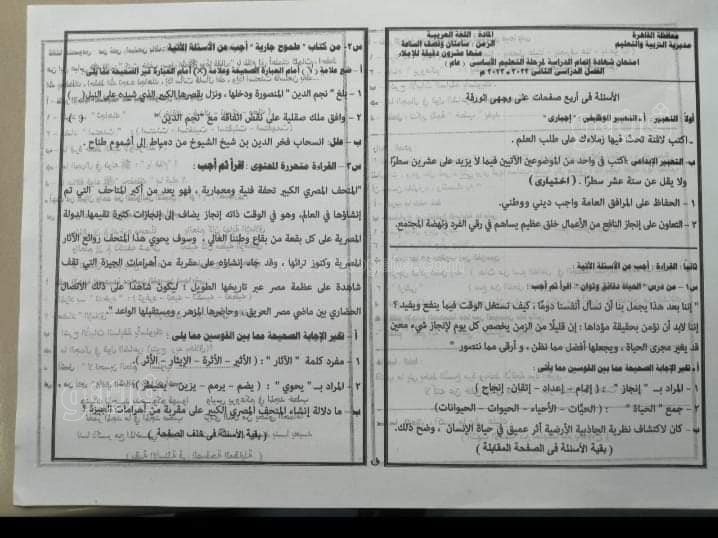 محافظة القاهرة
مديرية التربية والتعليم
المادة : اللغة العربية
الزمن : ساعتان ونصف الساعة
منها عشرون دقيقة للإملاء
امتحان شهادة إتمام الدراسة لمرحلة التعليم الأساسى ( عام )
الفصل الدراسى الثانى ٢٠٢٢ / ٢٠٢٣ م
الأسئلة فى أربع صفحات على وجهى الورقة
أولاً التعبير : أ - التعبير الوظيفى : " إجبارى "
- اكتب لافتة تحث فيها زملاءك على طلب العلم .
ب- التعبير الإبداعى : اكتب فى واحد من الموضوعين الآتيين فيما لا يزيد على عشرين سطرًا
ولا يقل عن ستة عشر سطرًا . ( اختيارى )
١ - الحفاظ على المرافق العامة واجب ديني ووطني.
٢ - التعاون على إنجاز النافع من الأعمال خلق عظيم يساهم في رقي الفرد ونهضة المجتمع.
ثانيًا : القراءة : أجب عن الأسئلة الآتية :
س١ - من درس " الحياة دقائق وثوان " اقرأ ثم أجب :
" إننا بعد هذا يجمل بنا أن نسأل أنفسنا دومًا ، كيف نستغل الوقت فيما ينفع ويفيد ؟
إننا لابد أن نؤمن بحقيقة مؤداها : إن قليلًا من الزمن يخصص كل يوم لإنجاز شيء معين
قد يغير مجرى الحياة ، ويجعلها أفضل مما نظن ، و أرقى مما نتصور "
أ - تخير الإجابة الصحيحة مما بين القوسين مما يلى :
١ - المراد بـ " إنجاز " : ( إتمام - إعداد - إتقان - إنجاح )
٢ - جمع " الحياة " : ( الحيَّات - الأحياء - الحيوات - الحيوانات )
ب- كان لاكتشاف نظرية الجاذبية الأرضية أثر عميق في حياة الإنسان ، وضح ذلك.
( بقية الأسئلة فى الصفحة المقابلة )
س٢- من كتاب " طموح جارية " أجب عن الأسئلة الآتية :
أ - ضع علامة ( √ ) أمام العبارة الصحيحة وعلامة ( × ) أمام العبارة غير الصحيحة مما يلى :
١ - بلغ " نجم الدين " المنصورة ودخلها ، ونزل بقصرها الكبير الذي شيده على النيل ( )
٢ - وافق ملك صقلية على نقض اتفاقه مع " نجم الدين "
ب - علل: انسحاب فخر الدين بن شيخ الشيوخ من دمياط إلى أشموم طناح .
س٣ - القراءة متحررة المحتوى : اقرأ ثم أجب :
"المتحف المصري الكبير تحفة فنية ومعمارية ، فهو يعد من أكبر المتاحف التي تم
إنشاؤها في العالم، وهو في الوقت ذاته إنجاز يضاف إلى إنجازات كثيرة تقيمها الدولة
المصرية على كل بقعة من بقاع وطننا الغالي ، وسوف يحوي هذا المتحف روائع الآثار
المصرية وكنوز تراثها ، وقد جاء إنشاؤه على مقربة من أهرامات الجيزة التي تقف
شاهدة على عظمة مصر عبر تاريخها الطويل ؛ ليكون شاهدًا على ذلك الاتصال
الحضاري بين ماضي مصر العريق ، وحاضرها المزهر ، ومستقبلها الواعد ".
أ - تخير الإجابة الصحيحة مما بين القوسين مما يلى :
١ - مفرد كلمة " الآثار " : ( الأثير - الأثرة - الإيثار - الأثر )
٢ - المراد بـ " يحوي " : ( يضم - يرمم - يزين - يضبط )
ب- ما دلالة إنشاء المتحف المصري الكبير على مقربة من أهرامات الجيزة ؟
( بقية الأسئلة فى خلف الصفحة )